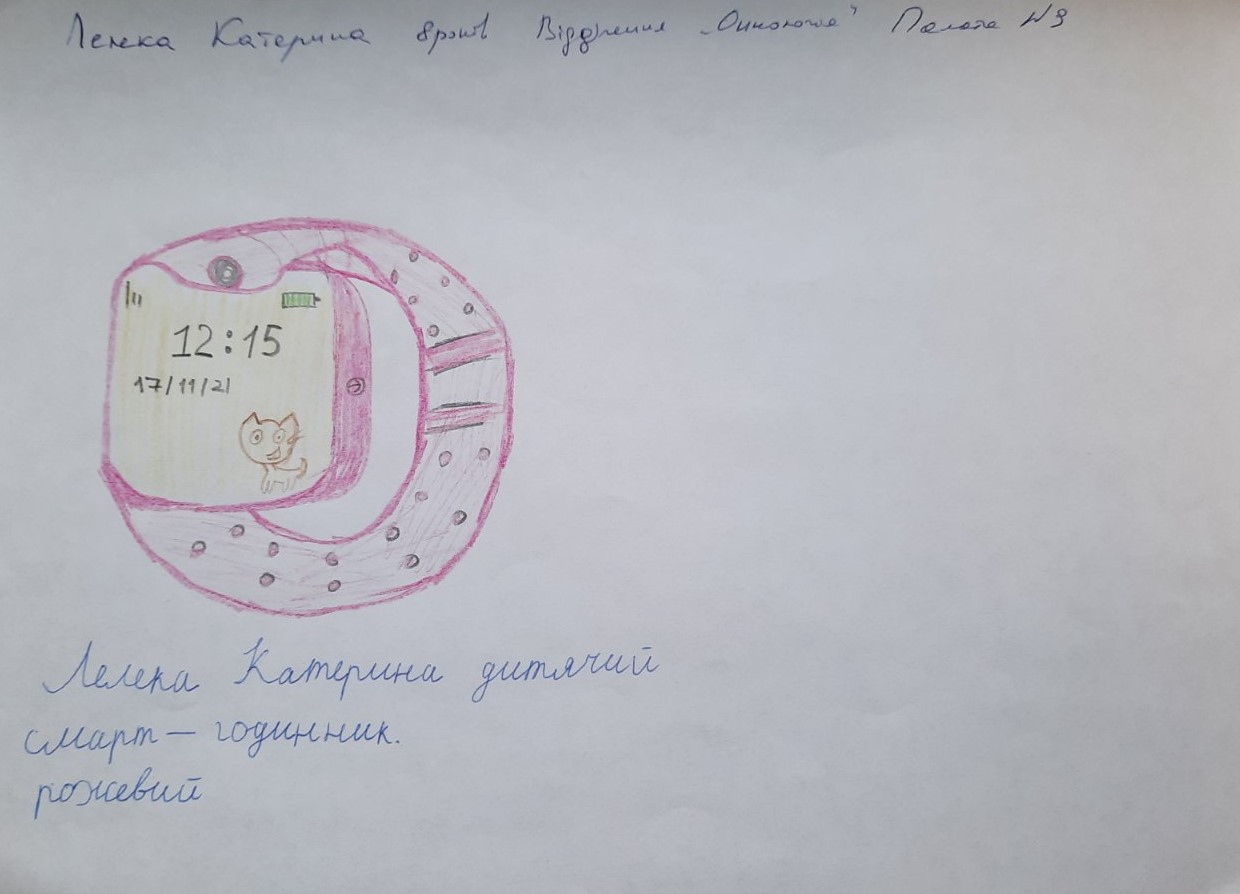 Лелека Катерина 8 років Відділення „Онкологія" Палата №3
12:15
17/11/21
Лелека Катерина дитячий
смарт – годинник.
рожевий